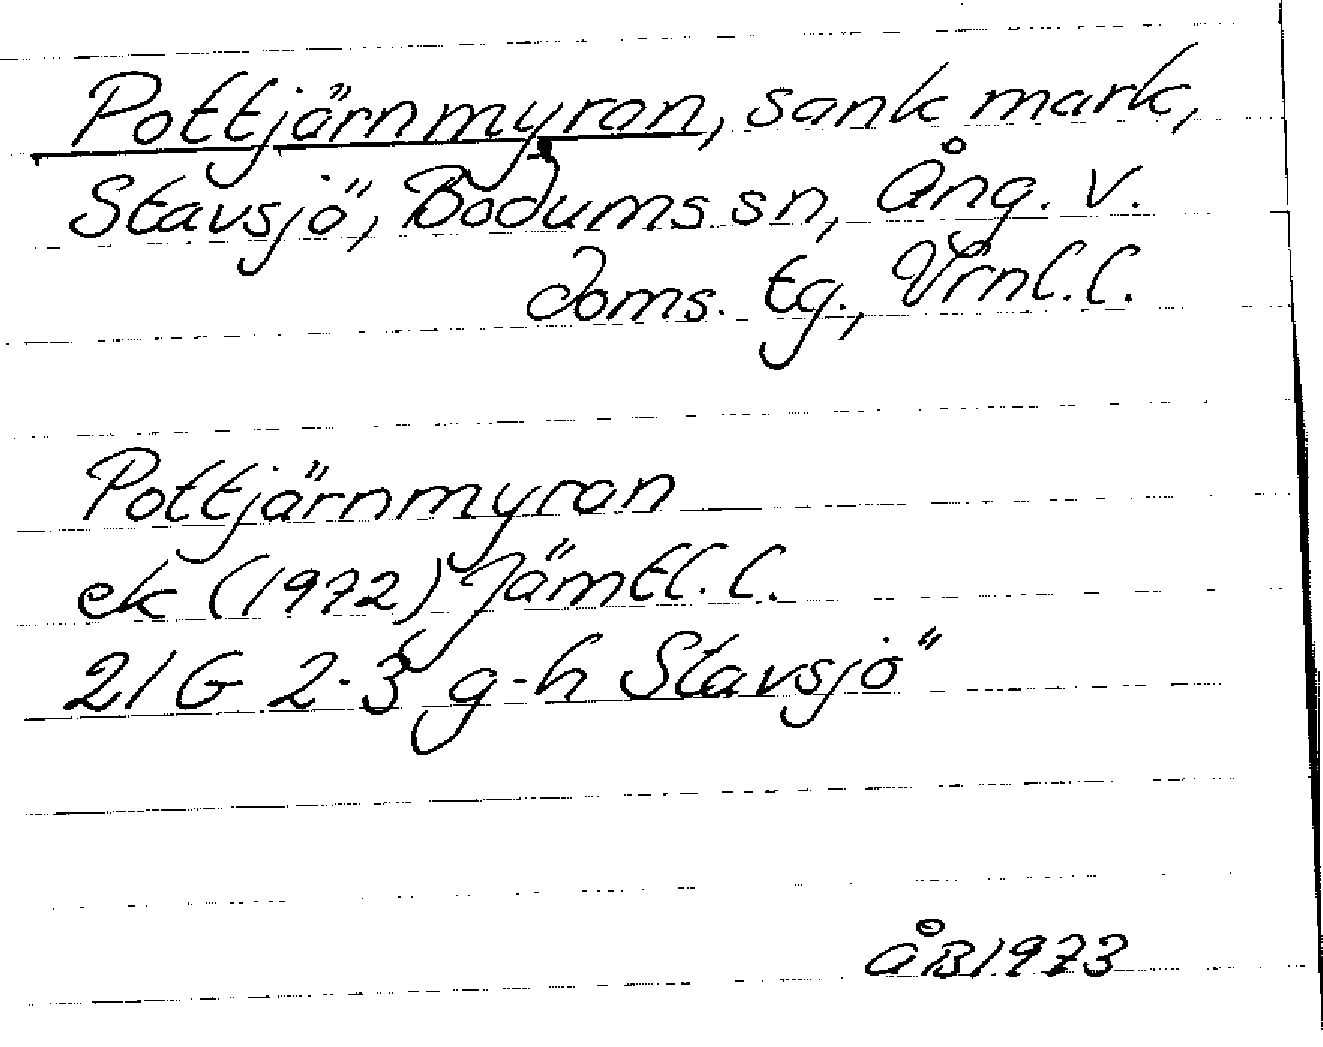 Pottjärnmyran, sank mark,
Stavsjö, Bodums sn, Ång. v.
doms. tg., Vrnl. l.
Pottjärnmyran
ek (1972) Jämtl. l.
21 G 2-3 g-h Stavsjö
ÅB 1973